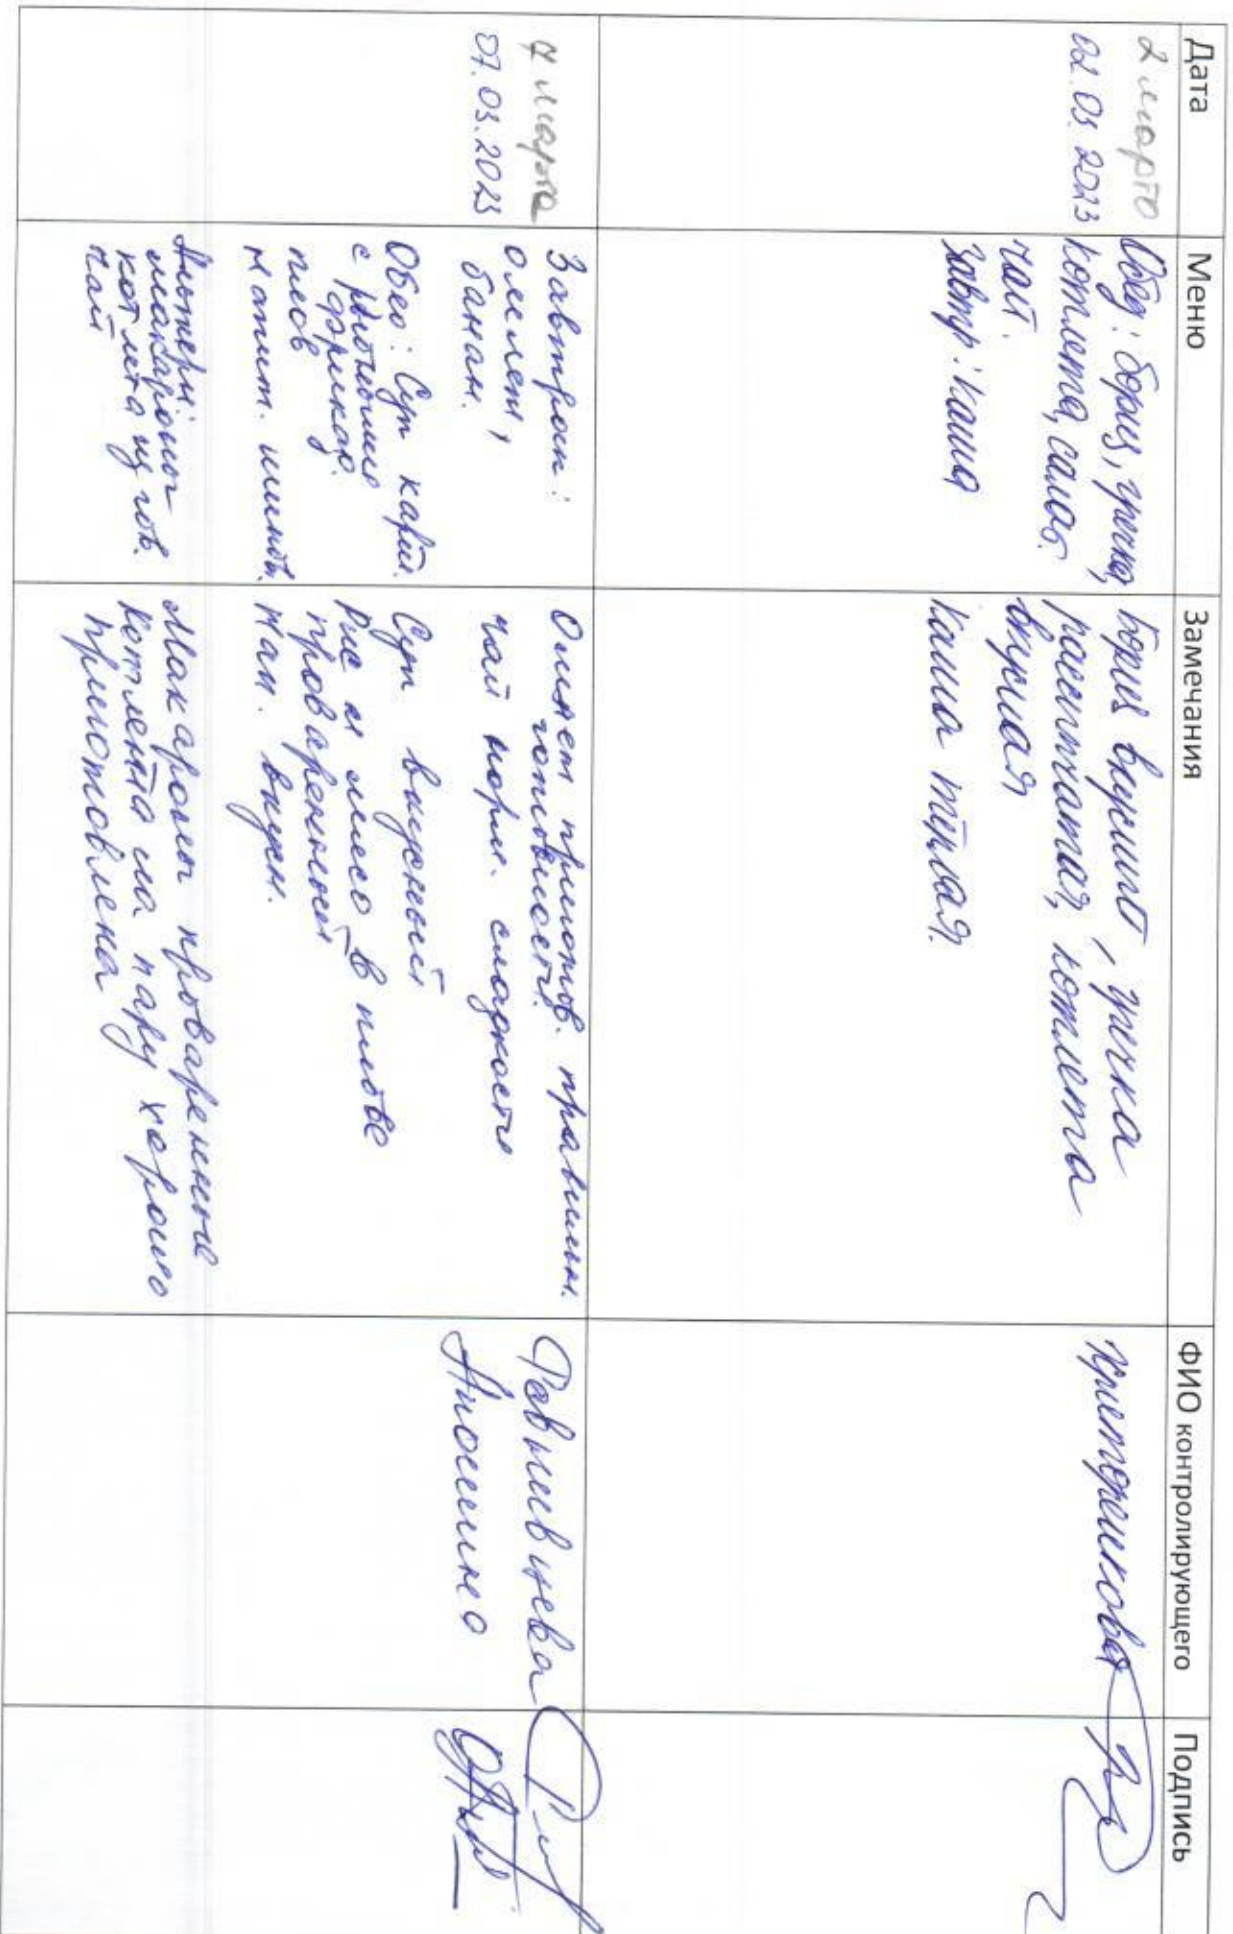 Дата
Меню
Замечания
ФИО контролирующего
Подпись
2 марта
02.03.2023
Обед: борщ, гречка,
котлета, салат.
чай.
Завтр: каша
Борщ вкусный, гречка
рассыпчатая, котлета
вкусная
каша теплая.
7 марта
07.03.2023
Завтрак:
омлет,
банан.
Обед: Суп карт.
с рыбными
фрикад.
плов
напит. шипов.
макароны
котлета из гов.
чай
Омлет приготов. правильн.
готовности.
чай норм. сладости
Суп вкусный
Рис и мясо в плове
проваренный
Нап. вкусн.
Макароны проваренные
котлета на пару хорошо
приготовлена